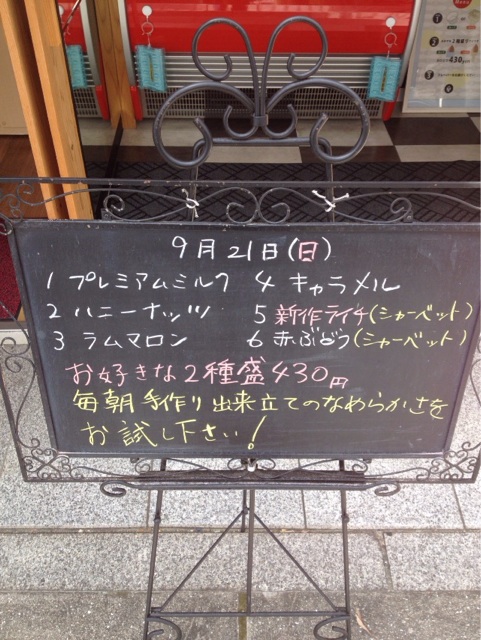 9月21日(日)
1 プレミアムミルク 4 キャラメル
2 ハニーナッツ 5 新作ライチ(シャーベット)
3 ラムマロン 6 赤ぶどう(シャーベット)
お好きな2種盛430円
毎朝手作り出来立てのなめらかさを
お試し下さい!